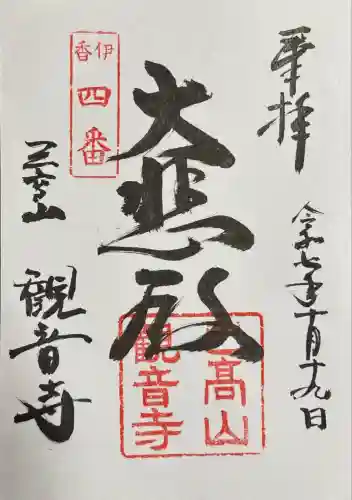 奉拝
令和七年十月十九日
伊香
四番
大悲殿
高山
觀音寺
高山
觀音寺